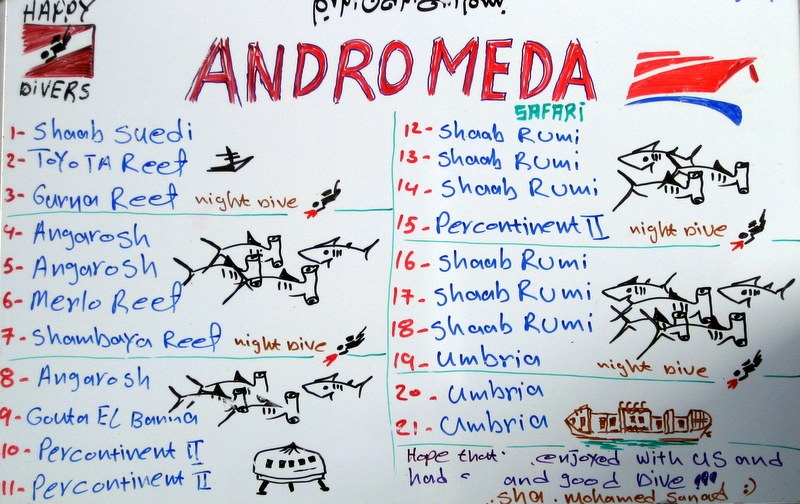 HAPPY
DIVERS
ANDROMEDA
SAFARI
1- Shaab Suedi
2- TOYOTA Reef
3- Gurna Reef night Dive
4- Angarosh
5- Angarosh
6- Merlo Reef
7- Shambaya Reef night Dive
8- Angarosh
9- Gouta El Banna
10- Percontinent II
11- Percontinent II
12- Shaab Rumi
13- Shaab Rumi
14- Shaab Rumi
15- Percontinent II night Dive
16- Shaab Rumi
17- Shaab Rumi
18- Shaab Rumi
19- Umbria night Dive
20- Umbria
21- Umbria
Hope that enjoyed with us and
had and good Dive !!!
mohamed :)